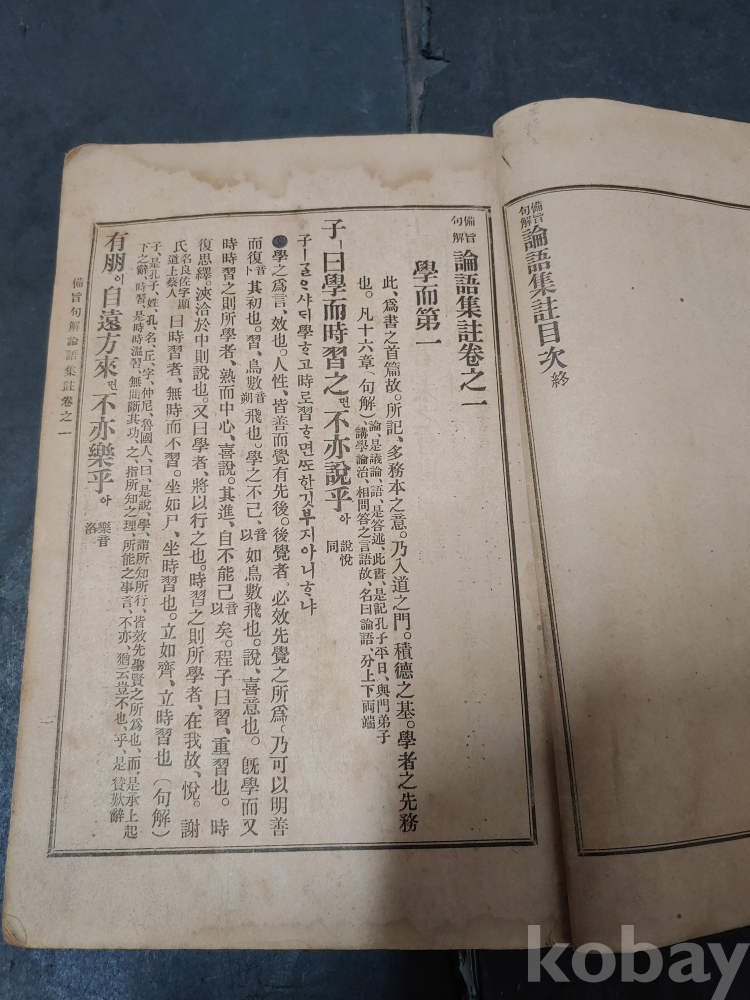 備旨句解 論語集註目次 終
備旨句解 論語集註卷之一
學而第一
此、爲書之首篇故。所記、多務本之意。乃入道之門。積德之基。學者之先務
也。凡十六章（句解）、論、是議論、語、是答述、此書、是記孔子平日、與門弟子講學論治、相問答之言語故、名曰論語 分上下兩端
子ㅣ曰學而時習之면不亦說乎아 說悅同
子ㅣᄀᆞᆯᄋᆞ샤ᄃᆡ學ᄒᆞ고時로習ᄒᆞ면ᄯᅩ한깃부지아니ᄒᆞ냐
學之爲言、效也。人性、皆善而覺有先後。後覺者、必效先覺之所爲、乃可以明善
而復音卜其初也。習、鳥數音朔飛也。學之不已、音以如鳥數飛也。說、喜意也。旣學而又
時時習之則所學者、熟而中心、喜說。其進、自不能已音以矣。程子曰習、重習也。時
復思繹。浹洽於中則說也。又曰學者、將以行之也。時習之則所學者、在我故、悅。謝
氏名良佐字顯道上蔡人曰時習者、無時而不習。坐如尸、坐時習也。立如齊、立時習也（句解）
子、是孔子、姓、孔、名、丘、字、仲尼、魯國人、曰、是說、學、謂所知所行、皆效先聖賢之所爲也、而、是承上起
下之辭、時習、是時時溫習、無間斷其功、之、指所知之理、所能之事言、不亦、猶云豈不也、乎、是贊歎辭
有朋이自遠方來면不亦樂乎아 樂音洛
備旨句解論語集註卷之一
一
kobay